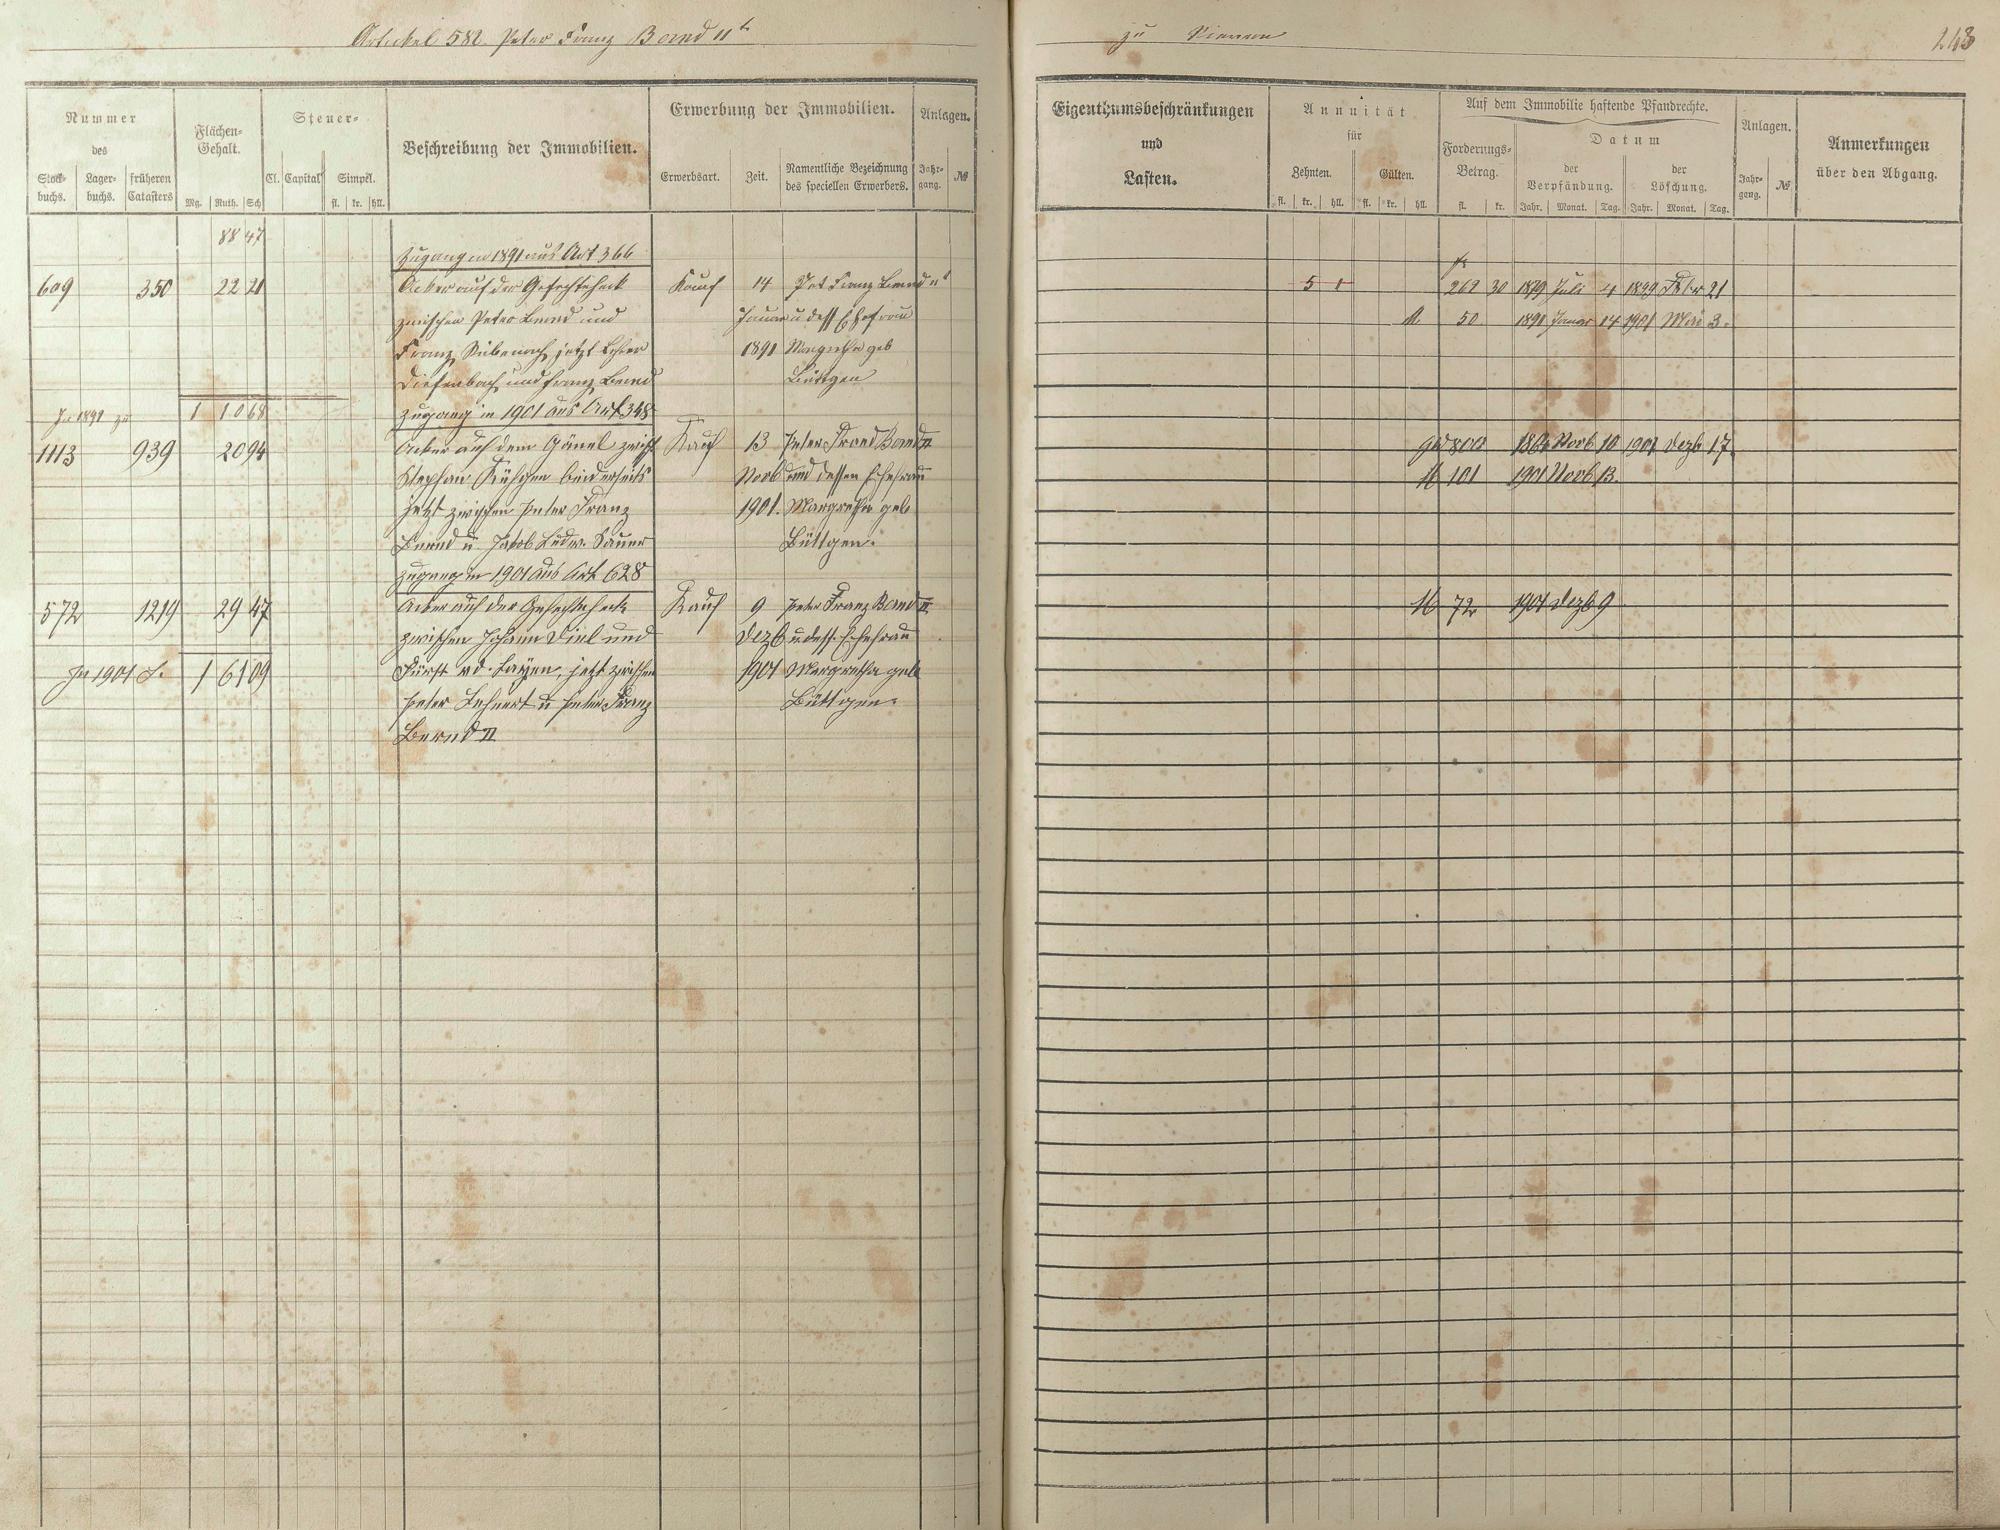 Artickel 582. Peter Franz Bernd II
zu
Nummer
des
Stock-
buchs.
Lager-
buchs.
früheren
Catasters
Flächen-
Gehalt.
Mg. Ruth. Sch
Steuer-
Cl. Capital Simpel.
fl. kr. hll.
Beschreibung der Immobilien.
Erwerbung der Immobilien.
Erwerbsart. Zeit.
Namentliche Bezeichnung
des speciellen Erwerbers.
Anlagen.
Jahr-
gang.
№
Eigenthumsbeschränkungen
und
Lasten.
Annuität
für
Zehnten. Gülten.
fl. kr. hll. fl. kr. hll.
Auf dem Immobilie haftende Pfandrechte.
Forderungs-
Betrag.
fl. kr.
Datum
der
Verpfändung.
Jahr. Monat. Tag.
der
Löschung.
Jahr. Monat. Tag.
Anlagen.
Jahr-
gang.
№
Anmerkungen
über den Abgang.
88 47
Zugang in 1891 aus Art 366
609 350 22 21 Acker auf der Kauf 14 Pet Franz Bernd II 5 1 262 30 1879 Juli 4 1899 21
zwischen Peter Bernd und Januar u dess Ehefrau M. 50 1891 Januar 14 1901 Mai 3.
Franz jetzt 1891 Margretha geb
Diefenbach und Franz Bernd Büttgen
In 1891 zu 1 10 68 Zugang in 1901 aus Art 348
1113 939 20 94 Acker auf dem zwisch. Kauf 13 Peter Franz Bernd II 800 1864 Novb 10 1901 Dezb 17.
Stephan beiderseits Novb und dessen Ehefrau M 101 1901 Novb 13.
jetzt zwischen Peter Franz 1901. Margretha geb
Bernd u Jakob Ludw. Sauer Büttgen.
Zugang in 1901 aus Art 628
572 1219 29 47 Acker auf der Kauf 9 Peter Franz Bernd II M 72 1901 Dezb 9
zwischen Johann Diel und Dezb u dess. Ehefrau
In 1901 S. 1 61 09 Fürst v d. Layen, jetzt zwischen 1901 Margretha geb
Peter Lehnert u Peter Franz Büttgen.
Bernd II